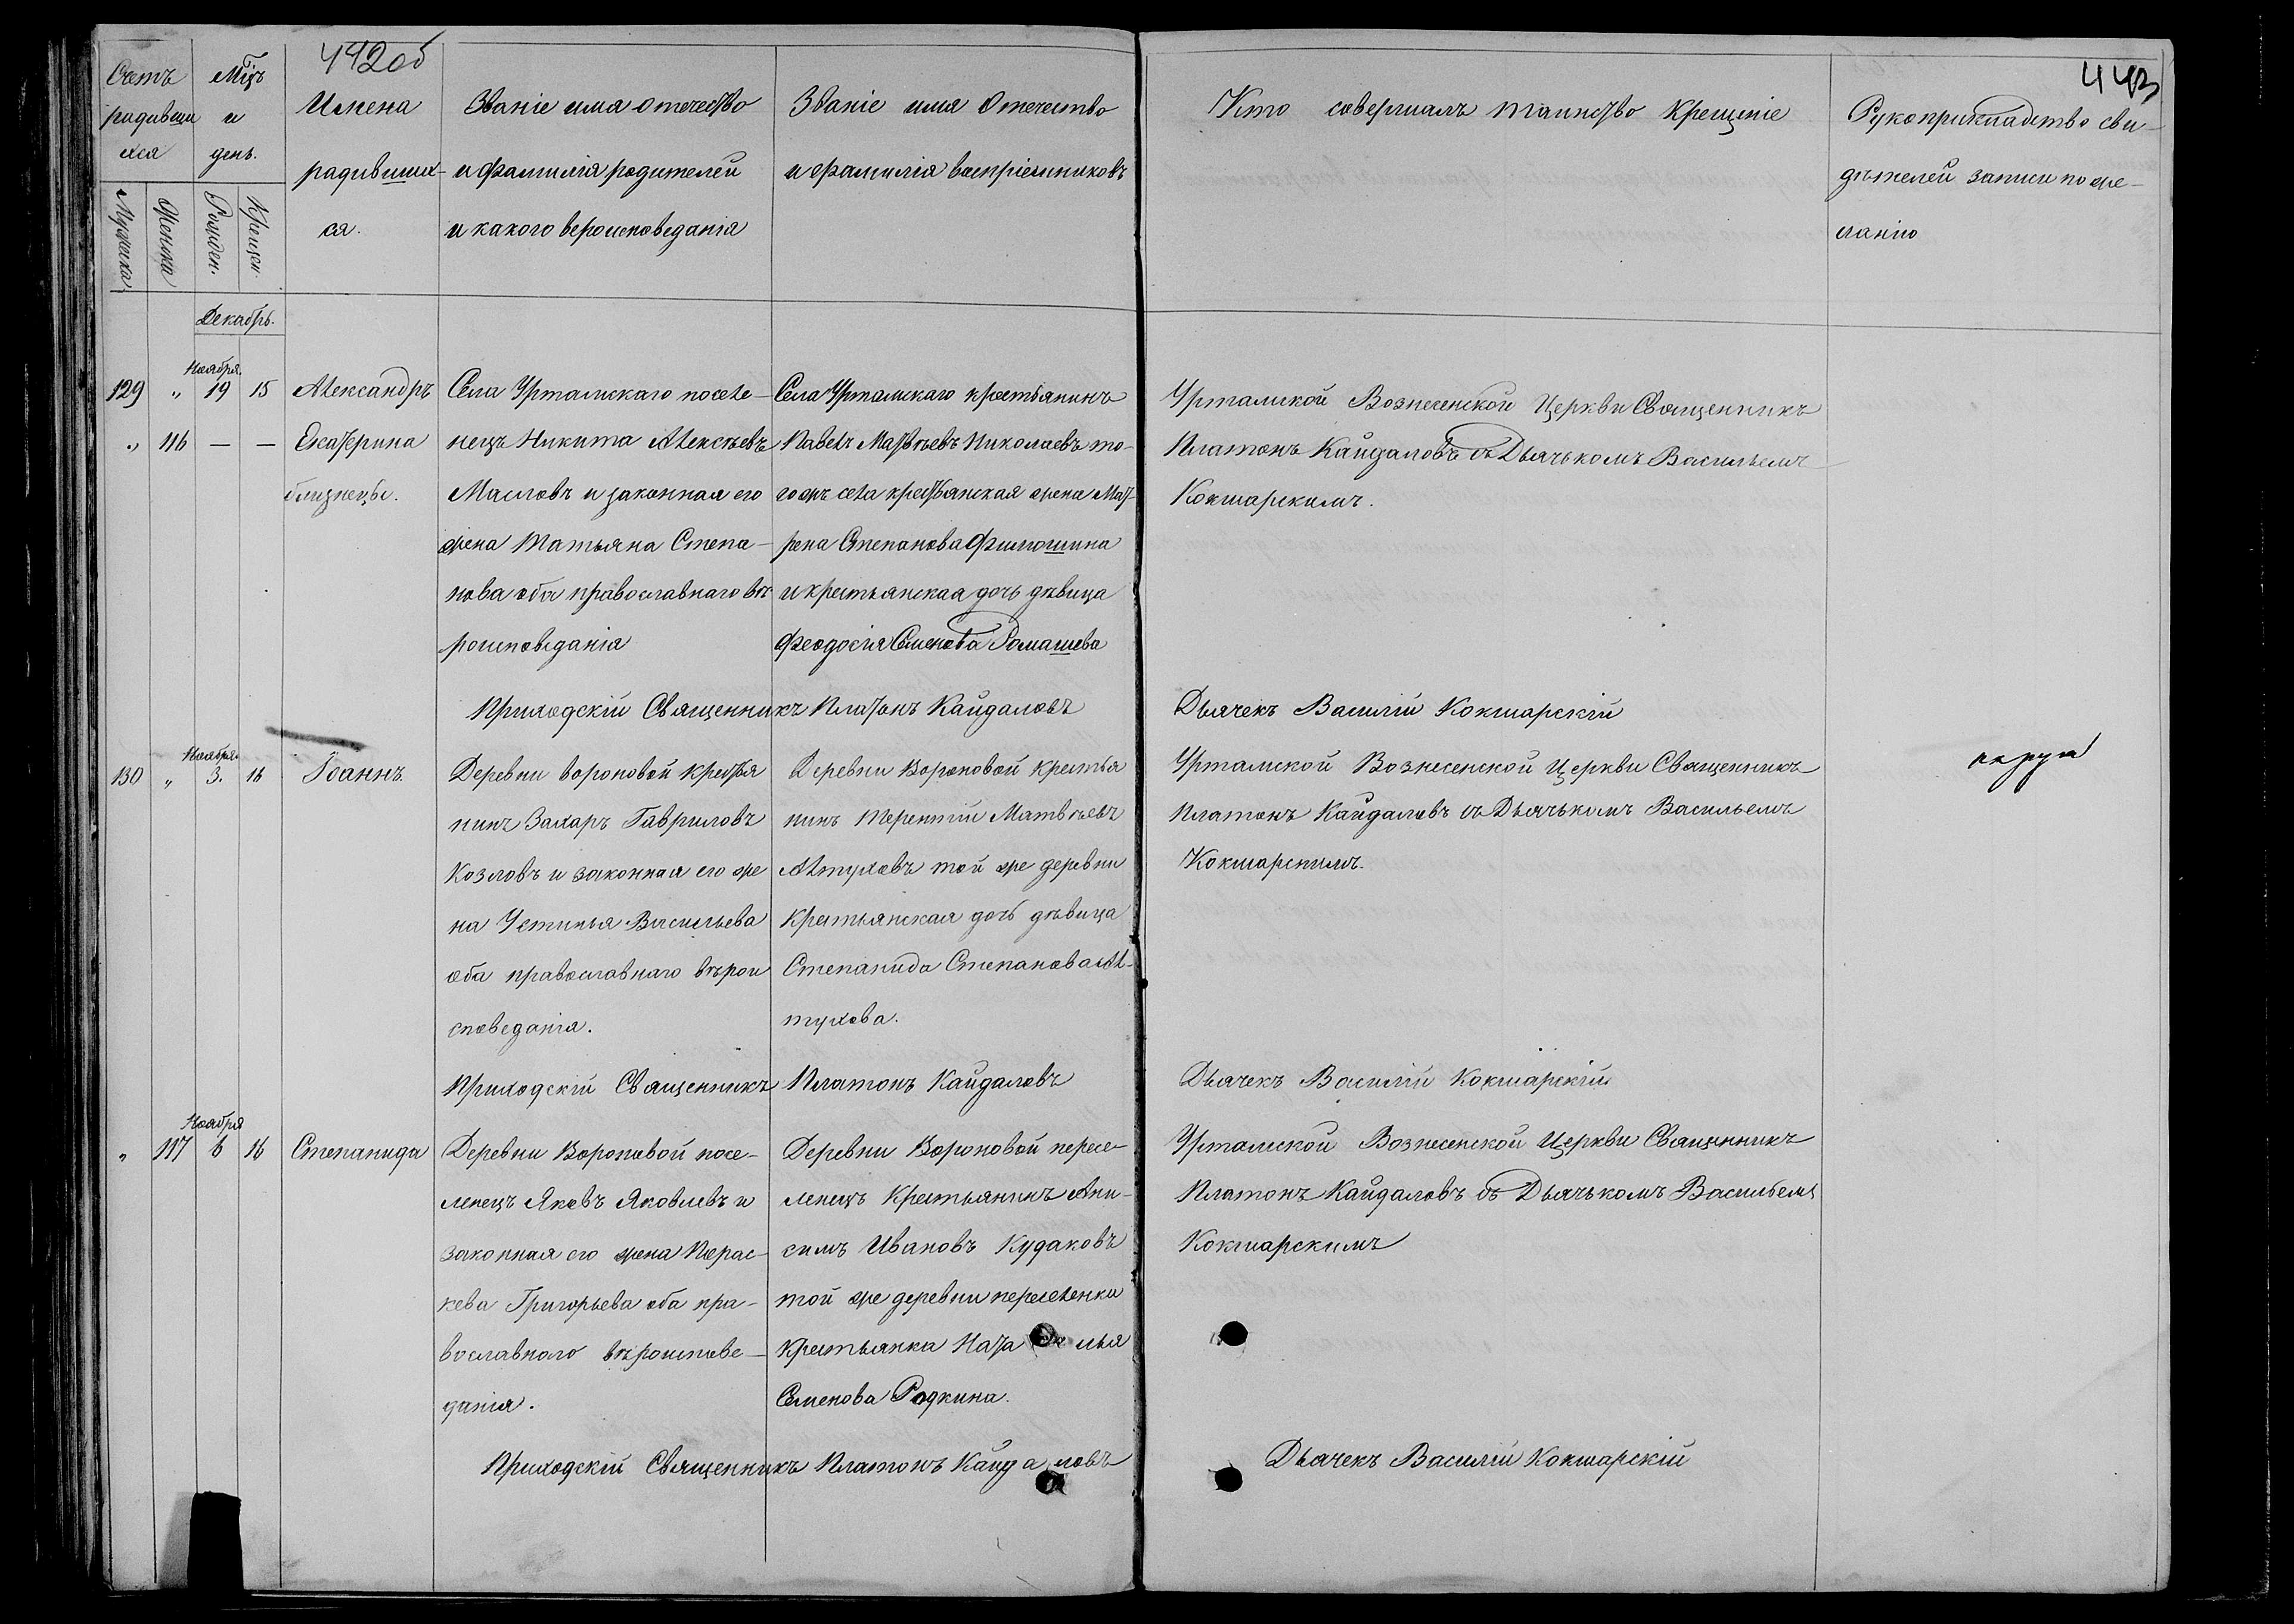 442об
443
Счетъ
родивши
хся
Мѣсяцъ
и
день.
Мужска
Женска
Рожден.
Крещен.
Имена
родивших-
ся.
Званіе имя отечество
и фамилія родителей
и какого вероисповеданія
Званіе имя отечество
и фамилія воспріемниковъ
Кто совершалъ таинство крещеніе
Рукоприкладство сви-
дѣтелей записи по же-
ланію
Декабрь.
Ноября.
129 " 19 15 Александръ
" 116 — — Екатерина
близнецы.
Села Уртамскаго поселе-
нецъ Никита Алексѣевъ
Масловъ и законная его
жена Татьяна Степа-
нова оба православнаго вѣ
роисповеданія
Села Уртамскаго крестьянинъ
Павелъ Матвѣевъ Николаевъ то-
гожъ села крестьянская жена Мат-
рена Степанова Филюшина
и крестьянская дочь дѣвица
Феодосія Семенова Ромашева
Уртамской Вознесенской Церкви Священникъ
Платонъ Кайдаловъ съ Дьячькомъ Васильемъ
Кокшарскимъ.
Приходскій Священникъ Платонъ Кайдаловъ
Дьячекъ Василій Кокшарскій
Ноября.
130 " 3. 16 Іоаннъ
Деревни Вороновой крестья
нинъ Захаръ Гавриловъ
Козловъ и законная его же
на Устинья Васильева
оба православнаго вѣрои
споведанія.
Деревни Вороновой крестья
нинъ Терентій Матвѣевъ
Алтуховъ той же деревни
крестьянская дочь дѣвица
Степанида Степанова Ал-
тухова.
Уртамской Вознесенской Церкви Священникъ
Платонъ Кайдаловъ съ Дьячькомъ Васильемъ
Кокшарскимъ.
Приходскій Священникъ Платонъ Кайдаловъ
Дьячекъ Василій Кокшарскій
Ноября
" 117 6 16 Степанида
Деревни Вороновой посе-
ленецъ Яковъ Яковлевъ и
законная его жена Парас-
кева Григорьева оба пра-
вославнаго вѣроиспове-
данія.
Деревни Вороновой пересе-
ленецъ Крестьянинъ Ани-
симъ Ивановъ Кудаковъ
той же деревни переселенки
крестьянка Ната лья
Семенова Родкина.
Уртамской Вознесенской Церкви Священникъ
Платонъ Кайдаловъ съ Дьячькомъ Васильемъ
Кокшарскимъ
Приходскій Священникъ Платонъ Кайдаловъ
Дьячекъ Василій Кокшарскій